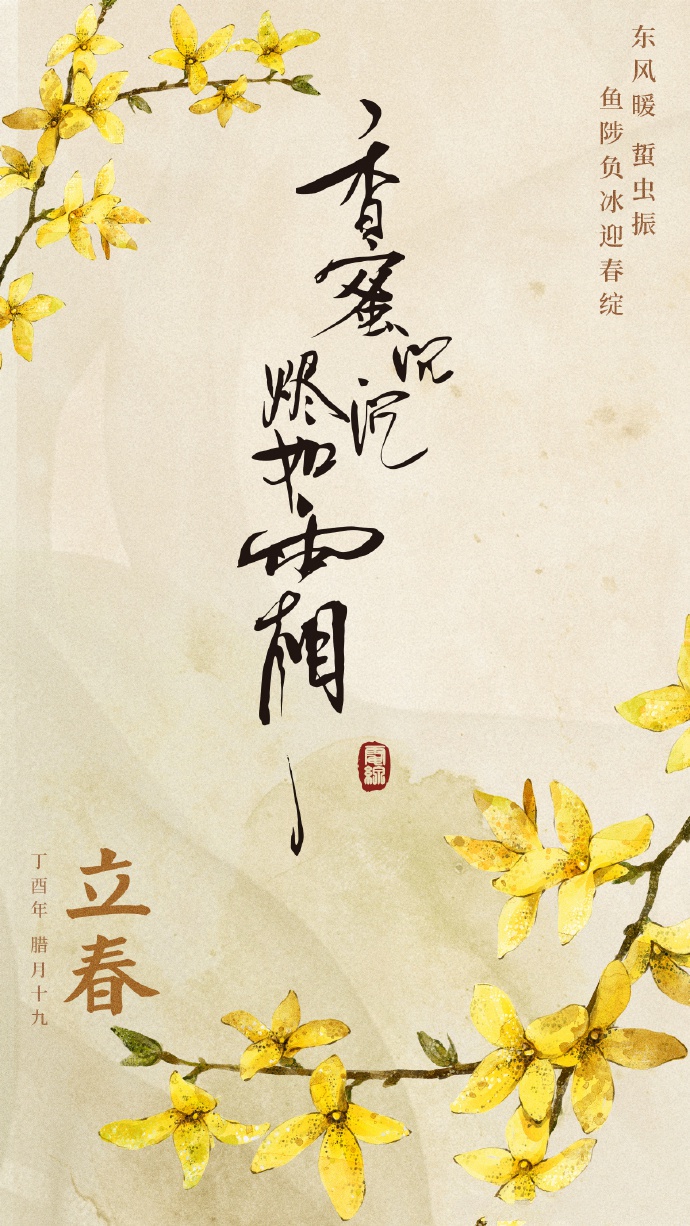 东风暖 蜇虫振
鱼陟负冰迎春绽
香蜜沉沉
烬如霜
立春
丁酉年 腊月十九